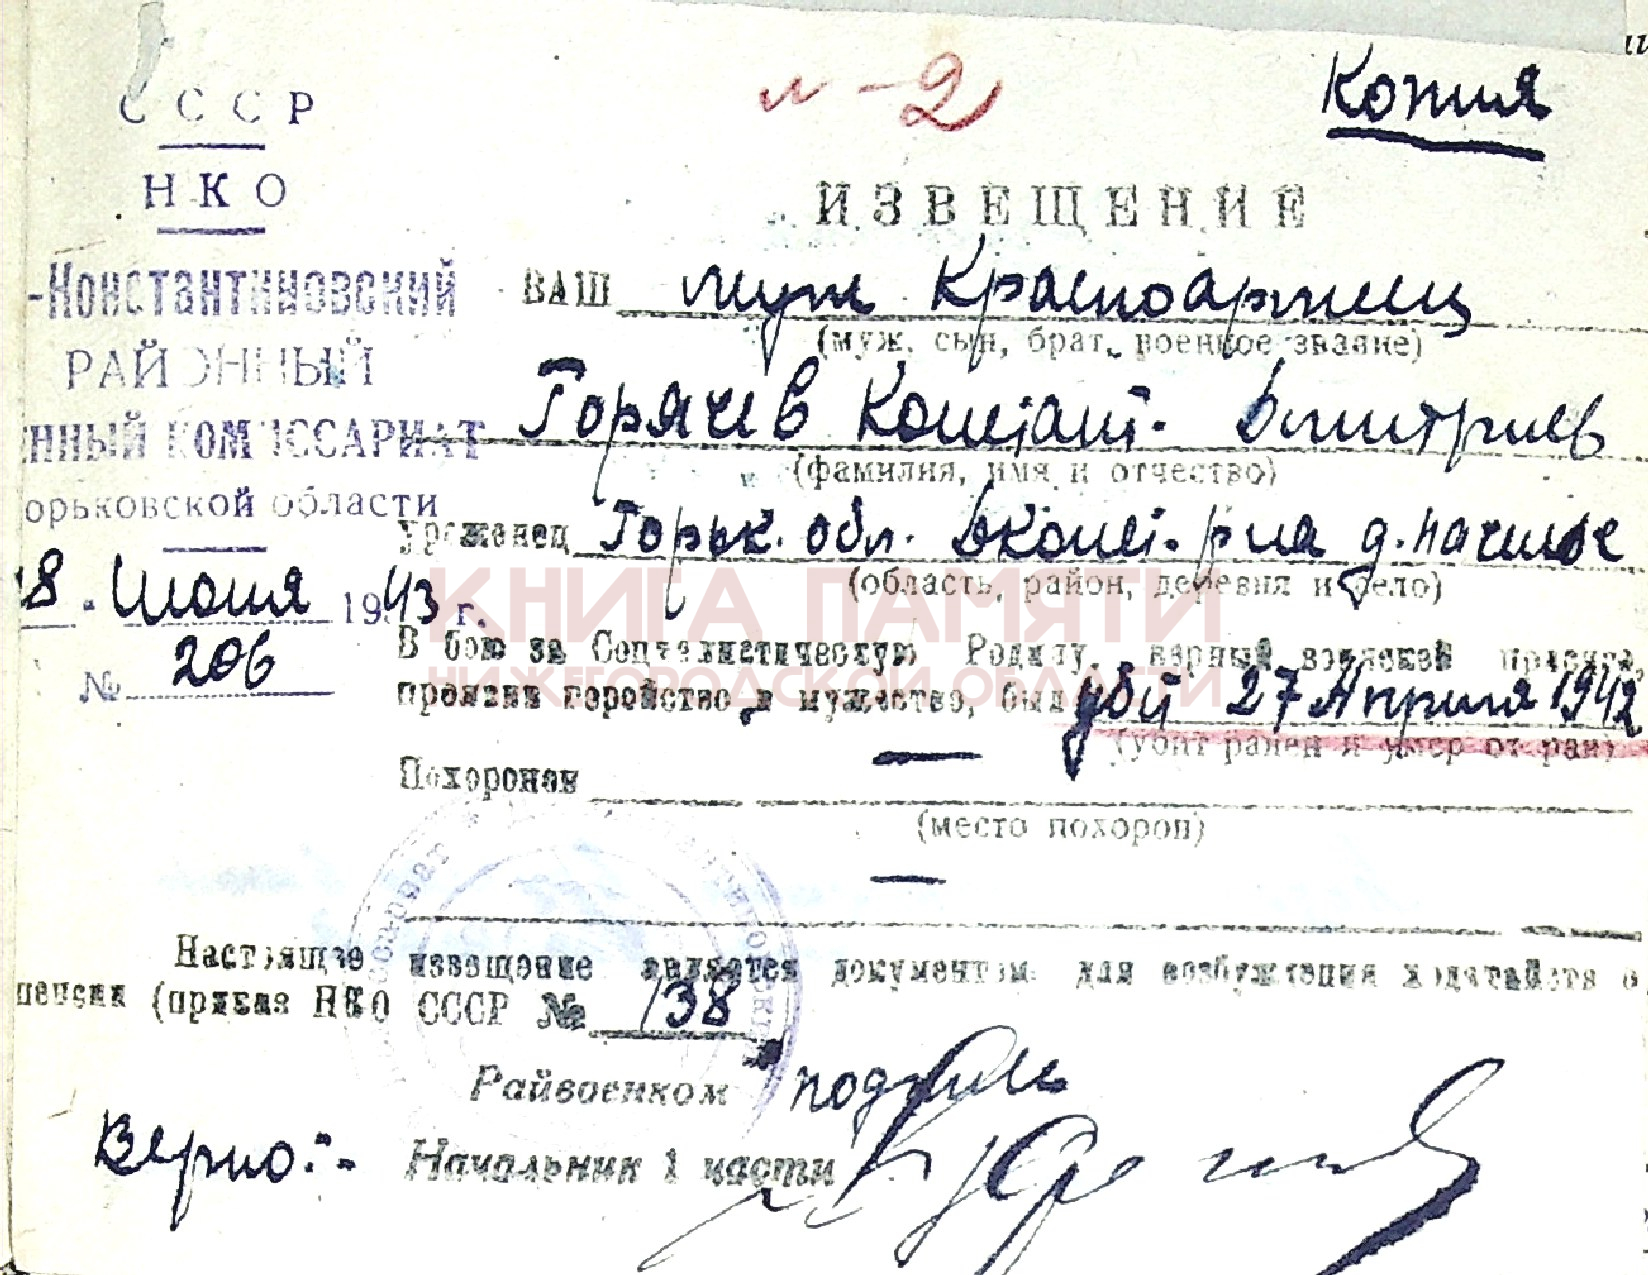 и-2
Копия
СССР
НКО
-Константиновский
РАЙОННЫЙ
ЕННЫЙ КОМИССАРИАТ
орьковской области
8 Июня 1943 г.
№ 206
ИЗВЕЩЕНИЕ
ВАШ муж Красноармеец
(муж, сын, брат, военное звание)
Горячев Констант. Дмитриев
(фамилия, имя и отчество)
Уроженец Горьк. обл. Дконст. р-на д.
(область, район, деревня и село)
В бою за Социалистическую Родину, верный воинской присяге,
проявив геройство и мужество, был убит 27 Апреля 1942
(убит ранен и умер от ран)
Похоронен —
(место похорон)
—
Настоящее извещение является документом для возбуждения ходатайств о
пенсии (приказ НКО СССР № 138
Райвоенком
Верно:- Начальник 1 части
КНИГА ПАМЯТИ
НИЖЕГОРОДСКОЙ ОБЛАСТИ